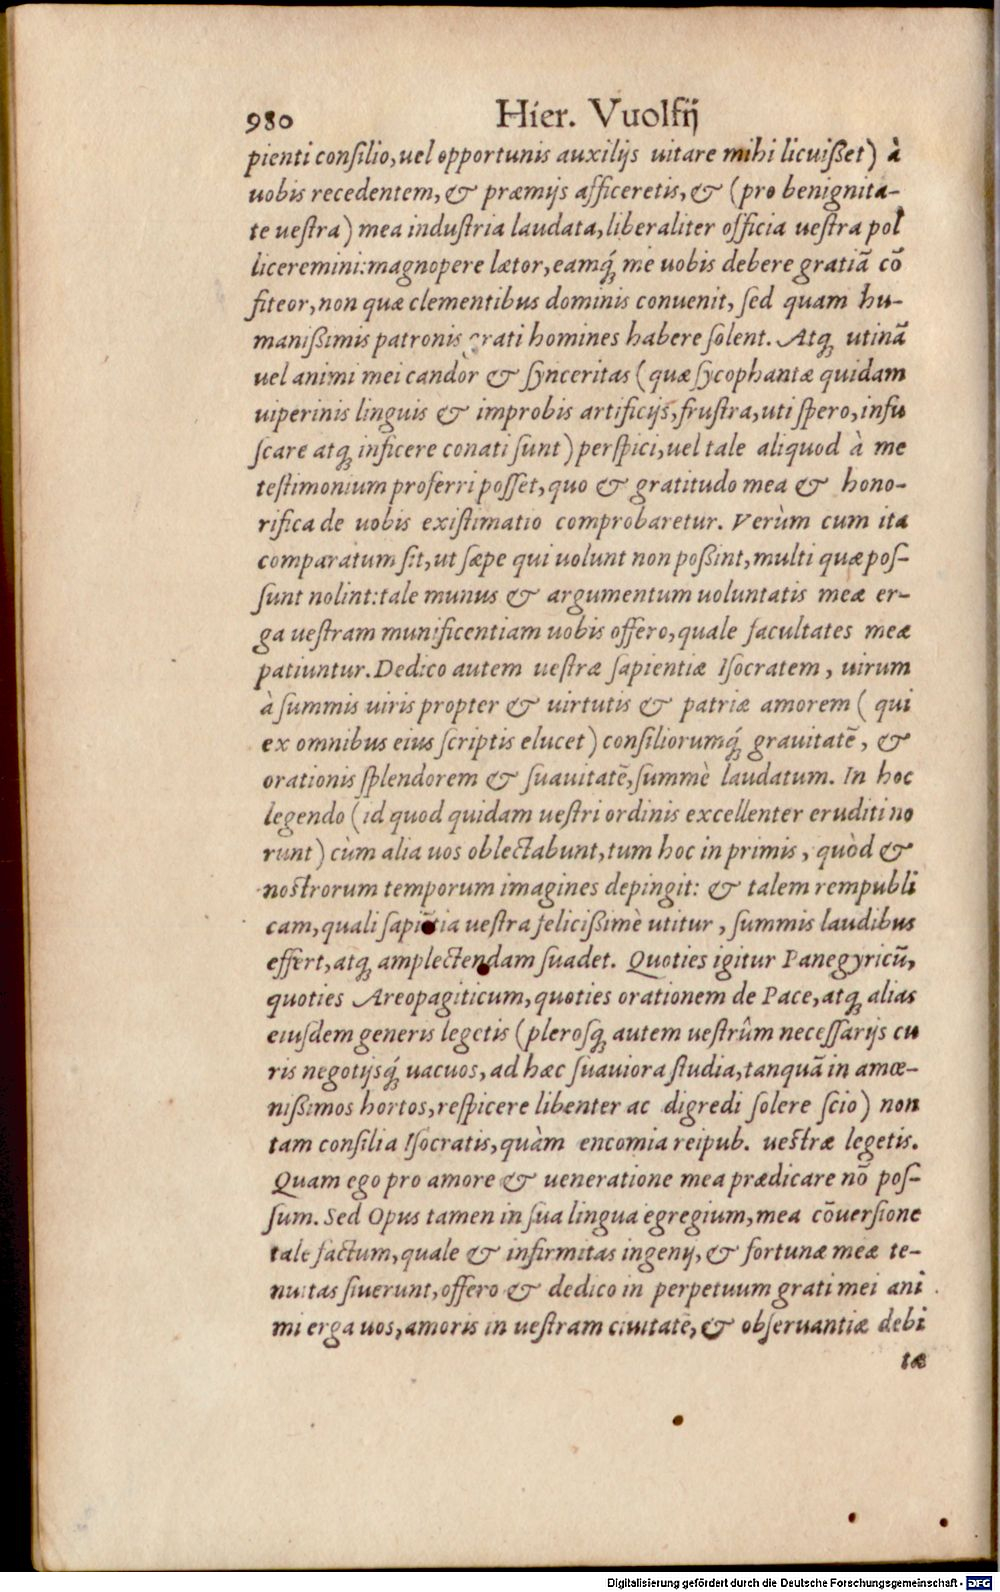 980 Hier. Vuolfij
pienti conſilio, uel opportunis auxilijs uitare mihi licuißet) à
uobis recedentem, & præmijs afficeretis, & (pro benignita-
te ueſtra) mea induſtria laudata, liberaliter officia ueſtra pol
liceremini: magnopere lætor, eamq́; me uobis debere gratiã cõ
fiteor, non quæ clementibus dominis conuenit, ſed quam hu-
manißimis patronis grati homines habere ſolent. Atq; utinã
uel animi mei candor & ſynceritas (quæ ſycophantæ quidam
uiperinis linguis & improbis artificijs, fruſtra, uti ſpero, infu
ſcare atq; inficere conati ſunt) perſpici, uel tale aliquod à me
teſtimonium proferri poſſet, quo & gratitudo mea & hono-
rifica de uobis exiſtimatio comprobaretur. Verùm cum ita
comparatum ſit, ut ſæpe qui uolunt non poßint, multi quæ poſ-
ſunt nolint: tale munus & argumentum uoluntatis meæ er-
ga ueſtram munificentiam uobis offero, quale facultates meæ
patiuntur. Dedico autem ueſtræ ſapientiæ Iſocratem, uirum
à ſummis uiris propter & uirtutis & patriæ amorem (qui
ex omnibus eius ſcriptis elucet) conſiliorumq́; grauitatẽ, &
orationis ſplendorem & ſuauitatẽ, ſummè laudatum. In hoc
legendo (id quod quidam ueſtri ordinis excellenter eruditi no
runt) cùm alia uos oblectabunt, tum hoc in primis, quòd &
noſtrorum temporum imagines depingit: & talem rempubli
cam, quali ſapiẽtia ueſtra feliciſſimè utitur, ſummis laudibus
effert, atq; amplectendam ſuadet. Quoties igitur Panegyricũ,
quoties Areopagiticum, quoties orationem de Pace, atq; alias
eiuſdem generis legetis (pleroſq; autem ueſtrûm neceſſarijs cu
ris negotijsq́; uacuos, ad hæc ſuauiora ſtudia, tanquã in amœ-
nißimos hortos, reſpicere libenter ac digredi ſolere ſcio) non
tam conſilia Iſocratis, quàm encomia reipub. ueſtræ legetis.
Quam ego pro amore & ueneratione mea prædicare nõ poſ-
ſum. Sed Opus tamen in ſua lingua egregium, mea cõuerſione
tale factum, quale & infirmitas ingenij, & fortunæ meæ te-
nuitas ſiuerunt, offero & dedico in perpetuum grati mei ani
mi erga uos, amoris in ueſtram ciuitatẽ, & obſeruantiæ debi
tæ
Digitalisierung gefördert durch die Deutsche Forschungsgemeinschaft - DFG